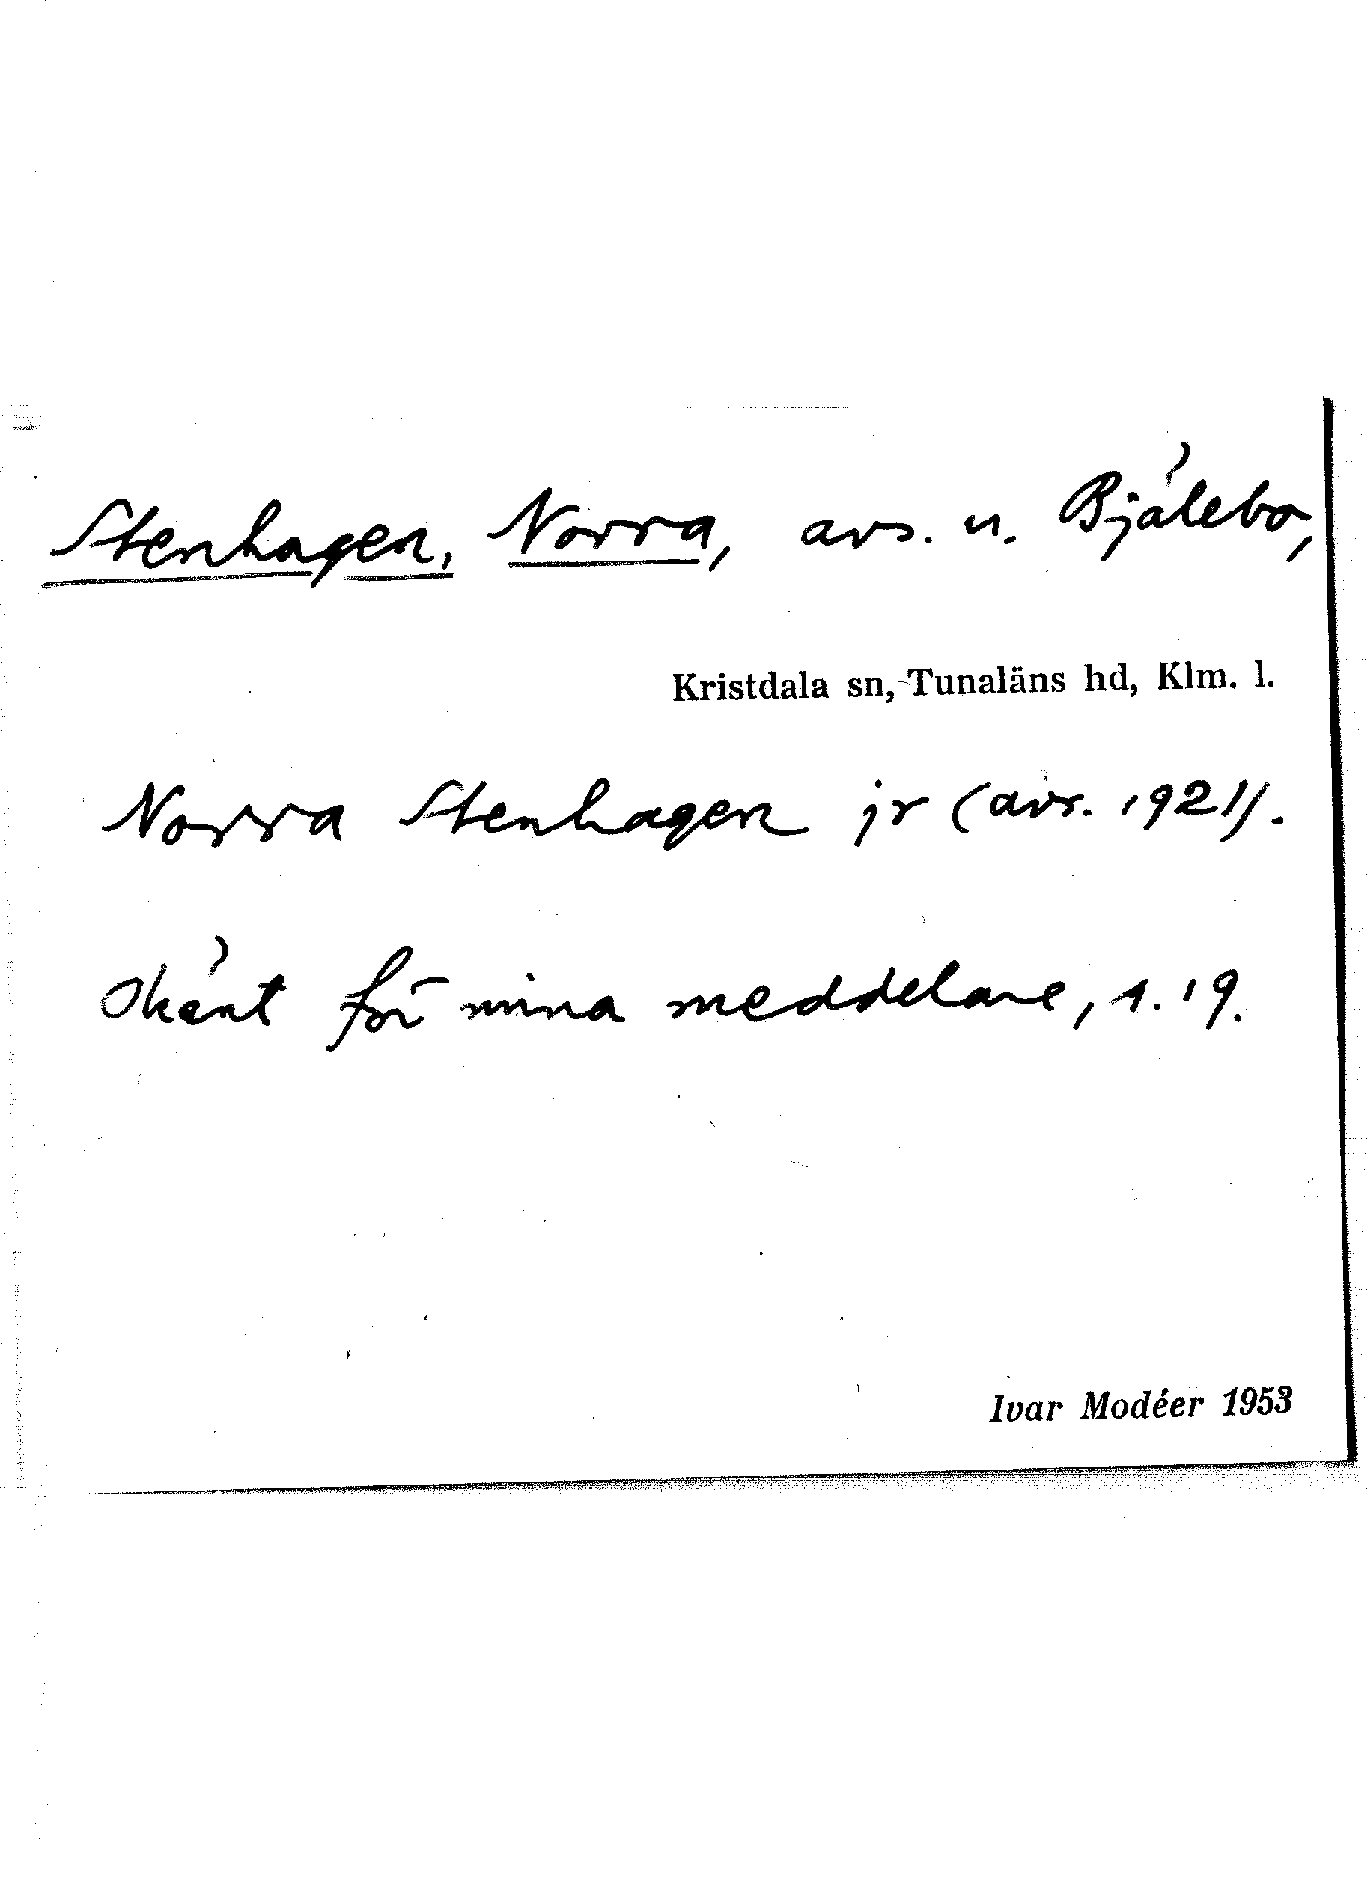 Stenhagen, Norra, avs. u. Bjälebo,
Kristdala sn, Tunaläns hd, Klm. l.
Norra Stenhagen jr (avs. 1921).
Okänt för mina meddelare, s. 19.
Ivar Modéer 1953